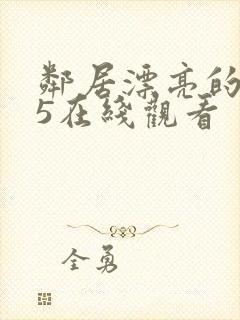 鄰居漂亮的
5在綫觀看
全勇